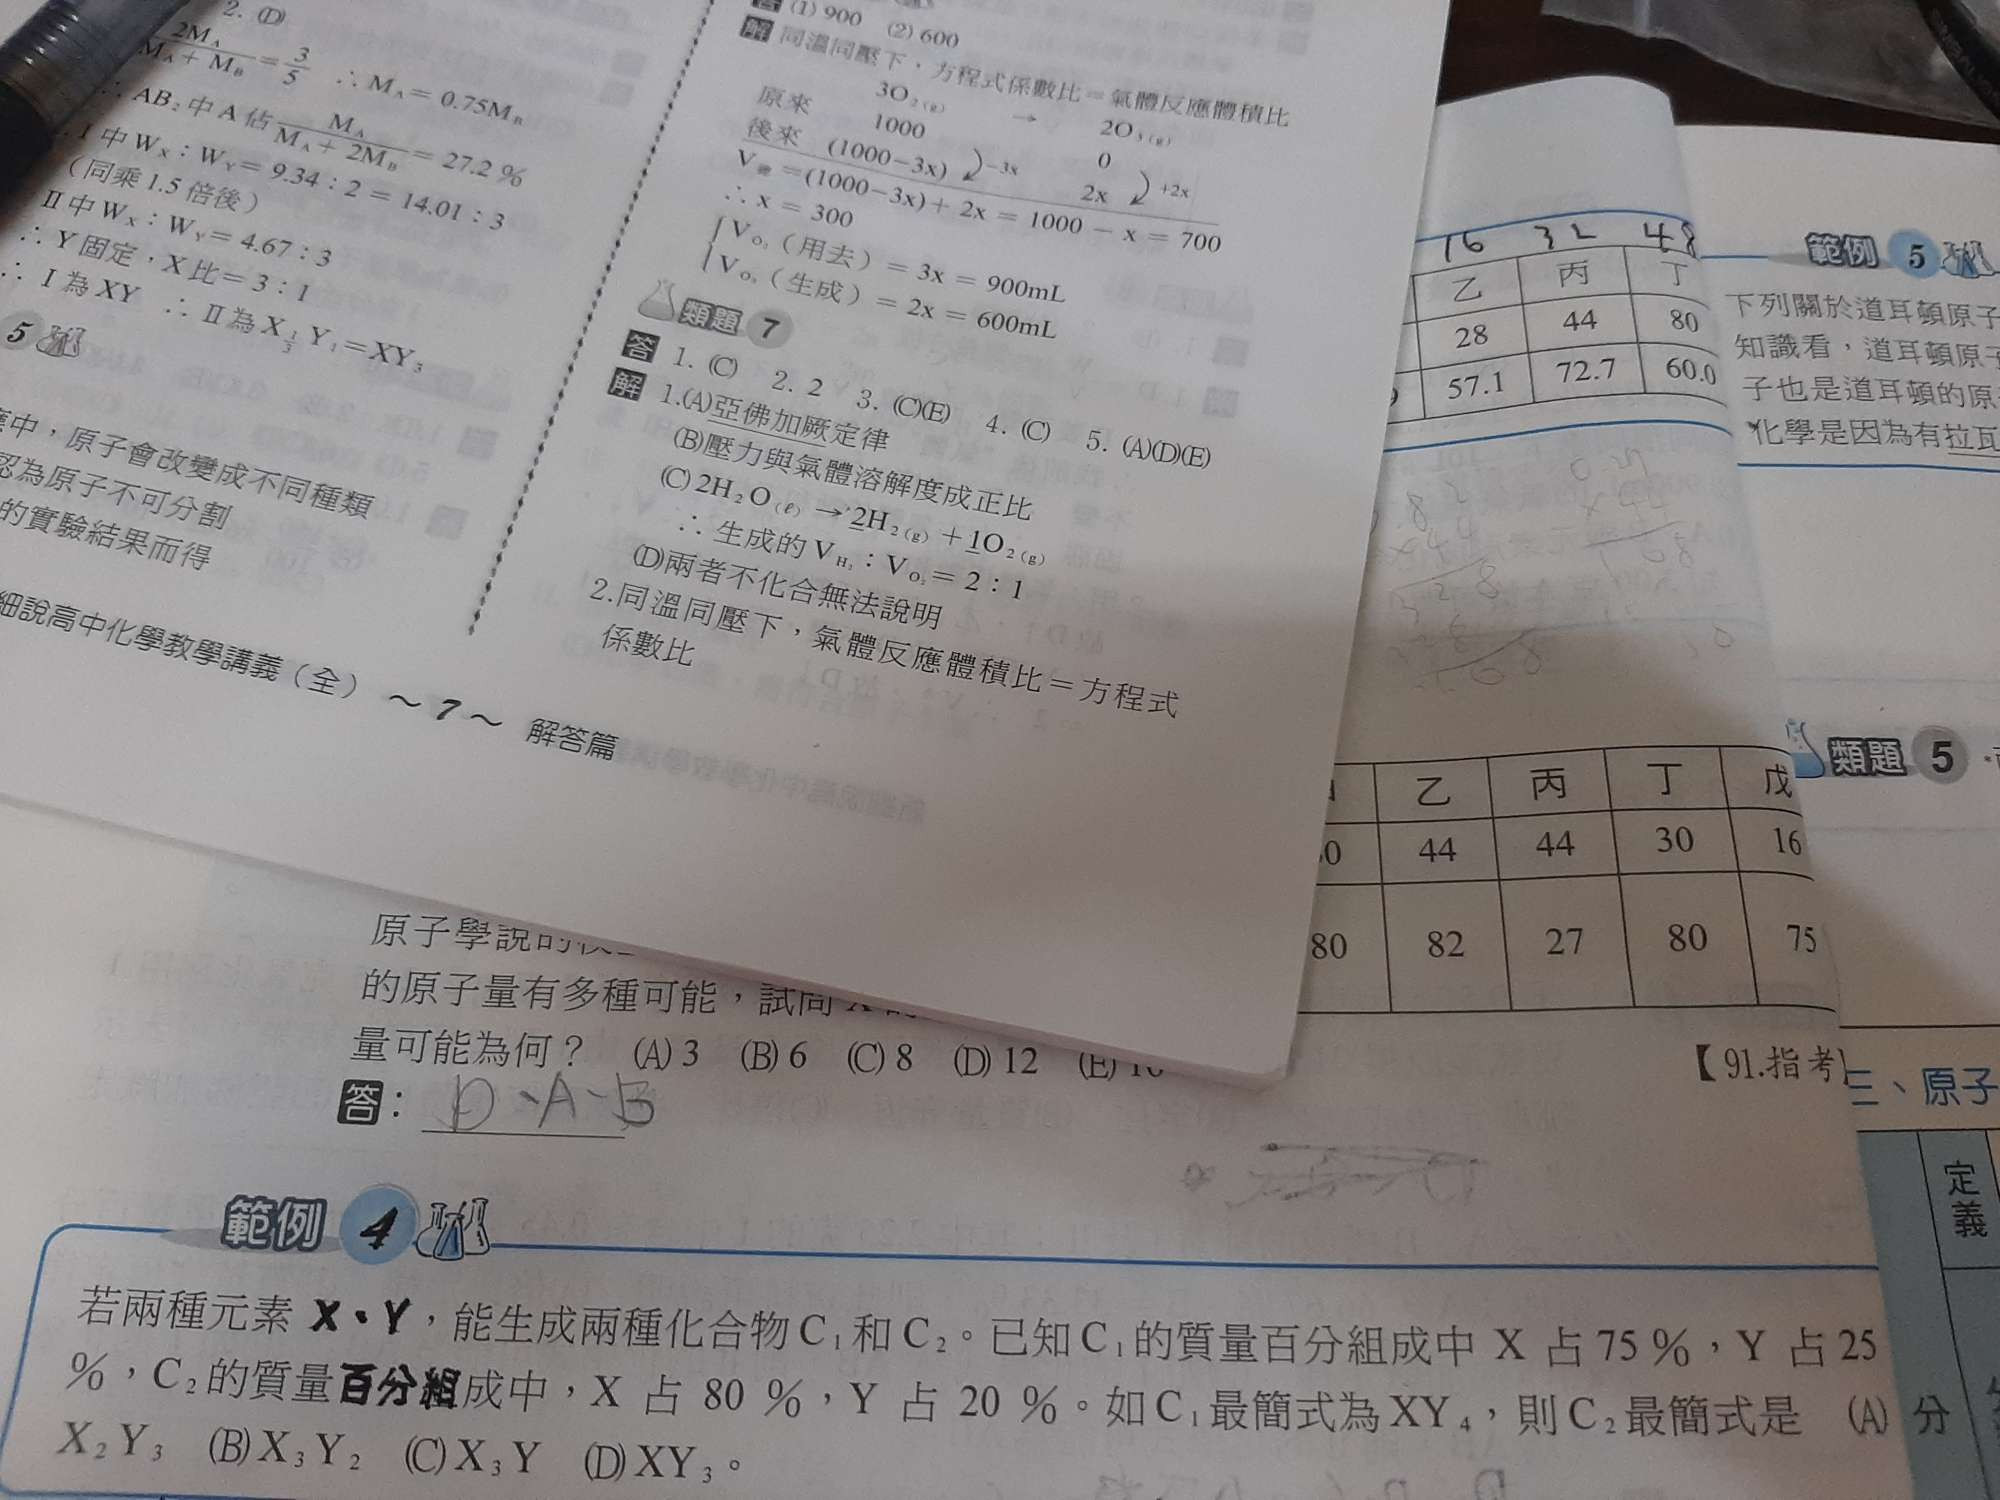 2. (D)
2M_A / M_A + M_B = 3/5 ∴ M_A = 0.75M_B
∴ AB₂中A佔 M_A / M_A + 2M_B = 27.2 %
I 中 W_X : W_Y = 9.34 : 2 = 14.01 : 3
(同乘 1.5 倍後)
II 中 W_X : W_Y = 4.67 : 3
∴ Y 固定,X 比 = 3 : 1
∴ I 為 XY ∴ II 為 X_{1/3} Y₁ = XY₃
5
應中,原子會改變成不同種類
認為原子不可分割
的實驗結果而得
細說高中化學教學講義(全) ~ 7 ~ 解答篇
答 (1) 900 (2) 600
解 同溫同壓下,方程式係數比=氣體反應體積比
3O₂(g) → 2O₃(g)
原來 1000 0
後來 (1000-3x) -3x 2x +2x
V後 = (1000-3x) + 2x = 1000 - x = 700
∴ x = 300
V_O₂(用去) = 3x = 900mL
V_O₃(生成) = 2x = 600mL
類題 7
答 1. (C) 2. 2 3. (C)(E) 4. (C) 5. (A)(D)(E)
解 1.(A)亞佛加厥定律
(B)壓力與氣體溶解度成正比
(C) 2H₂O(ℓ) → 2H₂(g) + 1O₂(g)
∴ 生成的 V_H₂ : V_O₂ = 2 : 1
(D)兩者不化合無法說明
2.同溫同壓下,氣體反應體積比=方程式
係數比
16 32 48
乙 丙 丁
28 44 80
57.1 72.7 60.0
乙 丙 丁 戊
0 44 44 30 16
80 82 27 80 75
原子學說的
的原子量有多種可能,試問 X
量可能為何? (A) 3 (B) 6 (C) 8 (D) 12 (E)
【91.指考】
答: D、A、B
範例 4
若兩種元素 X、Y,能生成兩種化合物 C₁ 和 C₂。已知 C₁ 的質量百分組成中 X 占 75 %,Y 占 25
%,C₂ 的質量百分組成中,X 占 80 %,Y 占 20 %。如 C₁ 最簡式為 XY₄,則 C₂ 最簡式是 (A)
X₂Y₃ (B) X₃Y₂ (C) X₃Y (D) XY₃。
範例 5
下列關於道耳頓原子
知識看,道耳頓原子
子也是道耳頓的原
化學是因為有拉瓦
類題 5
三、原子
定義
分